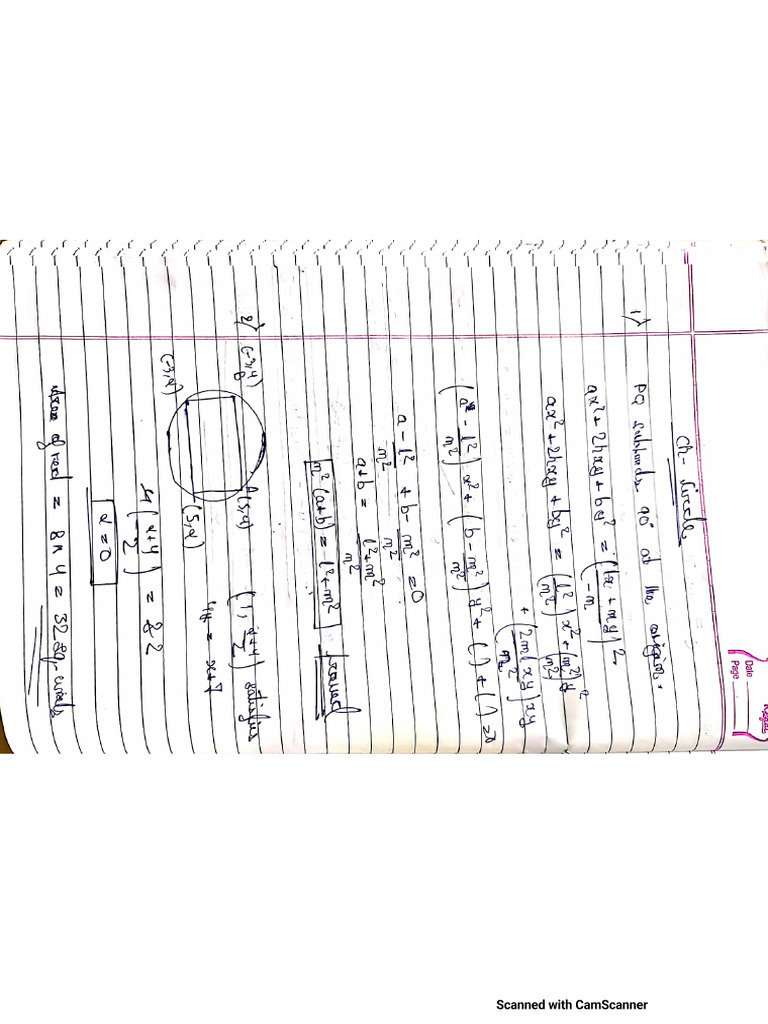 Date
Page
Ch- Circle
1) PQ subtends 90° at the origin.
ax² + 2hxy + by² = (lx + my / -n)²
ax² + 2hxy + by² = (l²/n²) x² + (m²/n²) y²
+ (2ml(xy) / n²) xy
(a - l²/n²) x² + (b - m²/n²) y² + ( ) + ( ) = 0
a - l²/n² + b - m²/n² = 0
a+b = l²+m² / n²
n²(a+b) = l²+m² Proved
2) (-3,4) B A(5,4) (-3,α) (5,α)
(1, α+4/2) satisfies
4y = x+7
4(α+4/2) = 8 2
α = 0
Area of rect = 8×4 = 32 sq. units
Scanned with CamScanner